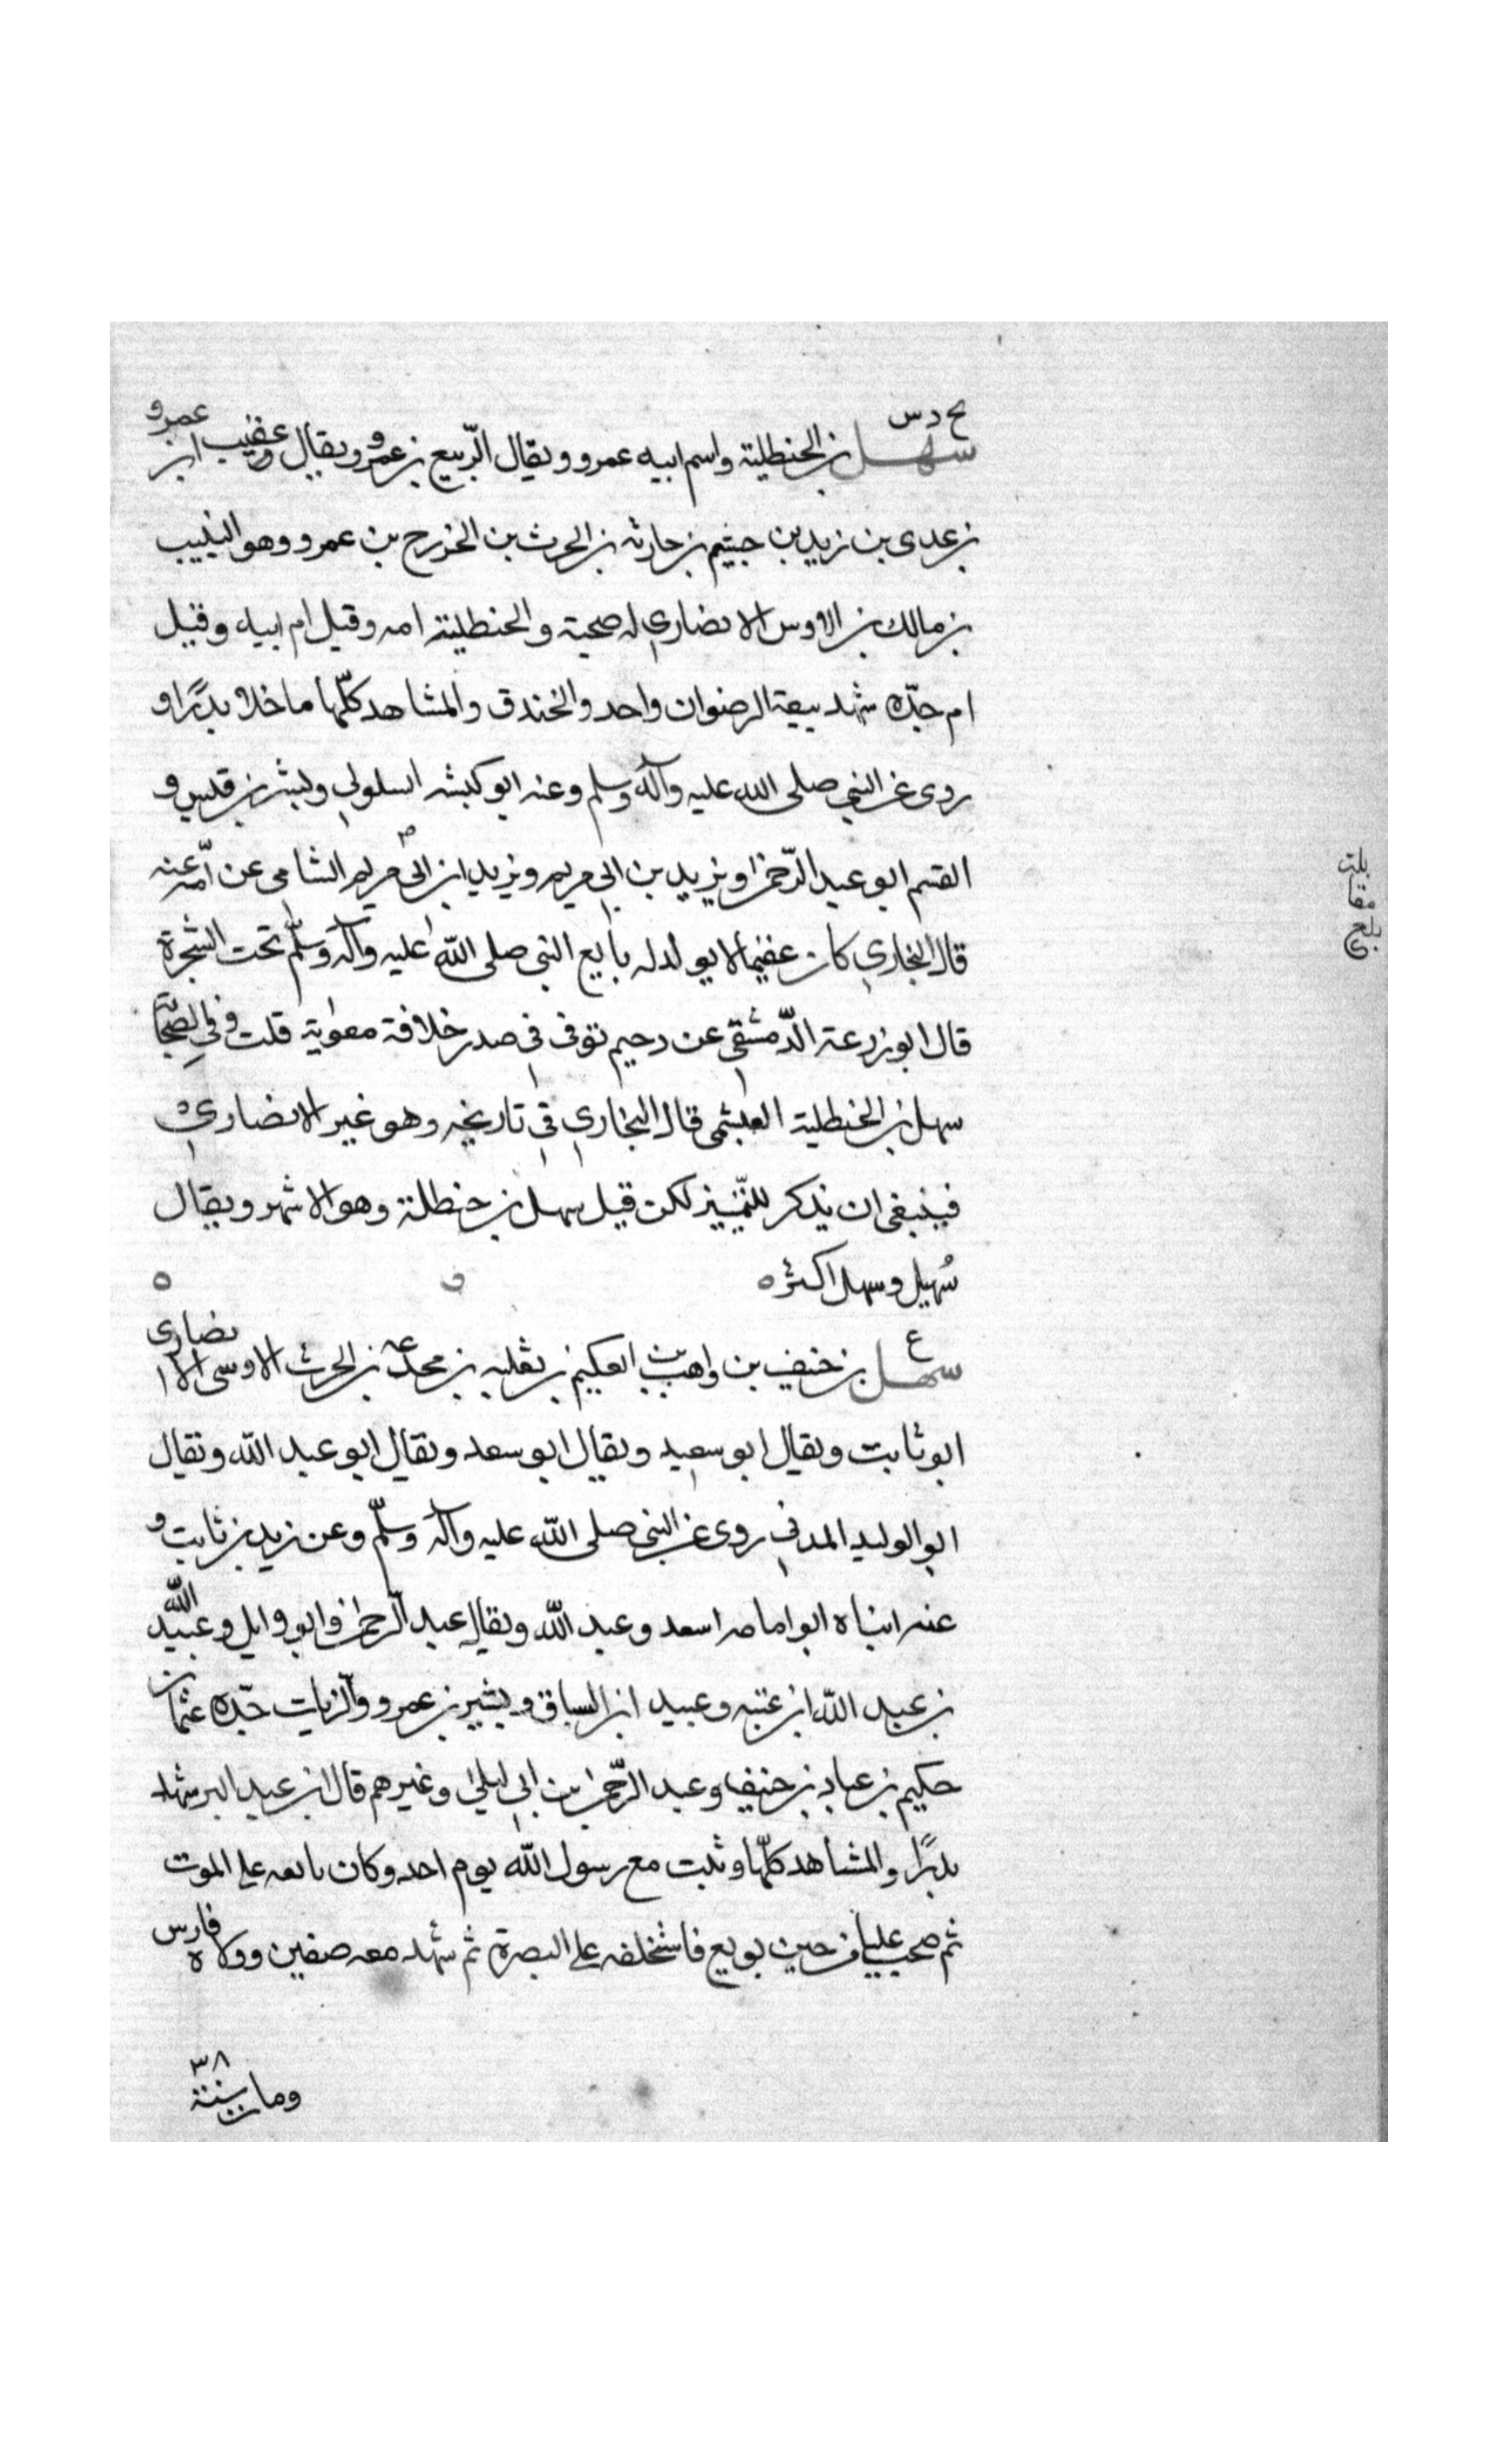 بخ د س
سهل بن الحنظلية واسم ابيه عمرو ويقال الربيع بن عمرو ويقال عقيب ابن عمرو
بن عدى بن زيد بن جشم بن حارثه بن الحرث بن الخزرج بن عمرو وهو النبيت
بن مالك بن الاوس الانصاري له صحبة والحنظلية امه وقيل ام ابيه وقيل
ام جدّه شهد بيعة الرضوان واحد والخندق والمشاهد كلّها ما خلا بدرًا و
روى عن النبي صلى الله عليه وآله وسلم وعنه ابو كبشه السلولي وبشر بن قيس و
القسم ابو عبد الرّحمن ويزيد بن ابي مريم ويزيد ابن ابي مريم الشامى عن امّه عنه
قال البخاري كان عقيما لا يولد له بايع النبي صلى الله عليه وآله وسلّم تحت الشجرة
قال ابو زرعة الدّمشقي عن دحيم توفى في صدر خلافة معوية قلت وفي الصحابة
سهل بن الحنظلية العبشمى قال البخاري في تاريخه وهو غير الانصاري
فينبغى ان يذكر للتّمييز لكن قيل سهل بن حنظلة وهو الاشهر ويقال
سُهيل وسهل اكثر ه
ع
سهل بن حنيف بن واهب بن العكيم بن ثعلبه بن مجدعه بن الحرث الاوسى الانصارى
ابو ثابت ويقال ابو سعيد ويقال ابو سعد ويقال ابو عبد الله ويقال
ابو الوليد المدني روى عن النبي صلى الله عليه وآله وسلّم وعن زيد بن ثابت و
عنه ابناه ابو امامه اسعد وعبد الله ويقال عبد الرّحمن وابو وايل وعبيد الله
بن عبد الله ابن عتبه وعبيد ابن السباق ويشير بن عمرو والرّباب جدّه عثمان
حكيم بن عباد بن حنيف وعبد الرّحمن بن ابي ليلى وغيرهم قال ابن عبد البر شهد
بدرًا والمشاهد كلّها وثبت مع رسول الله يوم احد وكان بايعه على الموت
ثم صحب عليا من حين بويع فاستخلفه على البصرة ثم شهد معه صفين وولاه فارس
ومات سنة ٣٨
بلغ
مقابلة